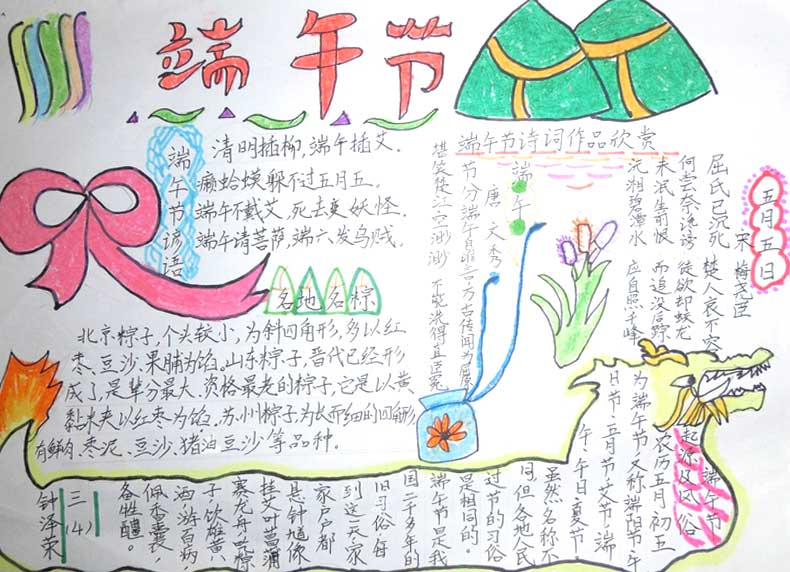 端午节
端午节谚语
清明插柳,端午插艾.
癞蛤蟆躲不过五月五.
端午不戴艾,死去变妖怪.
端午请菩萨,端六发乌贼.
各地名粽
北京粽子,个头较小,为斜四角形,多以红
枣、豆沙、果脯为馅。山东粽子,晋代已经形
成了,是辈分最大、资格最老的粽子,它是以黄
黏米夹以红枣为馅。苏州粽子为长而细的四角形,
有鲜肉、枣泥、豆沙、猪油豆沙等品种。
端午节诗词作品欣赏
端午
唐 文秀
节分端午自谁言,万古传闻为屈原
堪笑楚江空渺渺 不能洗得直臣冤
五月五日
宋 梅尧臣
屈氏已沉死 楚人哀不容
何尝奈谗谤 徒欲却蛟龙
未泯生前恨 而追没后踪
沅湘碧潭水 应自照千峰
端午节
起源及风俗
农历五月初五
为端午节,又称端阳节、午
日节、五月节、艾节、端
午、午日、夏节。
虽然名称不
同,但各地人民
过节的习俗
是相同的。
端午节是我
国二千多年的
旧习俗,每
到这一天,家
家户户都
悬钟馗像
挂艾叶菖蒲
赛龙舟,吃粽
子,饮雄黄
酒,游百病,
佩香囊,
备牲醴。
三(4)
钟泽荣